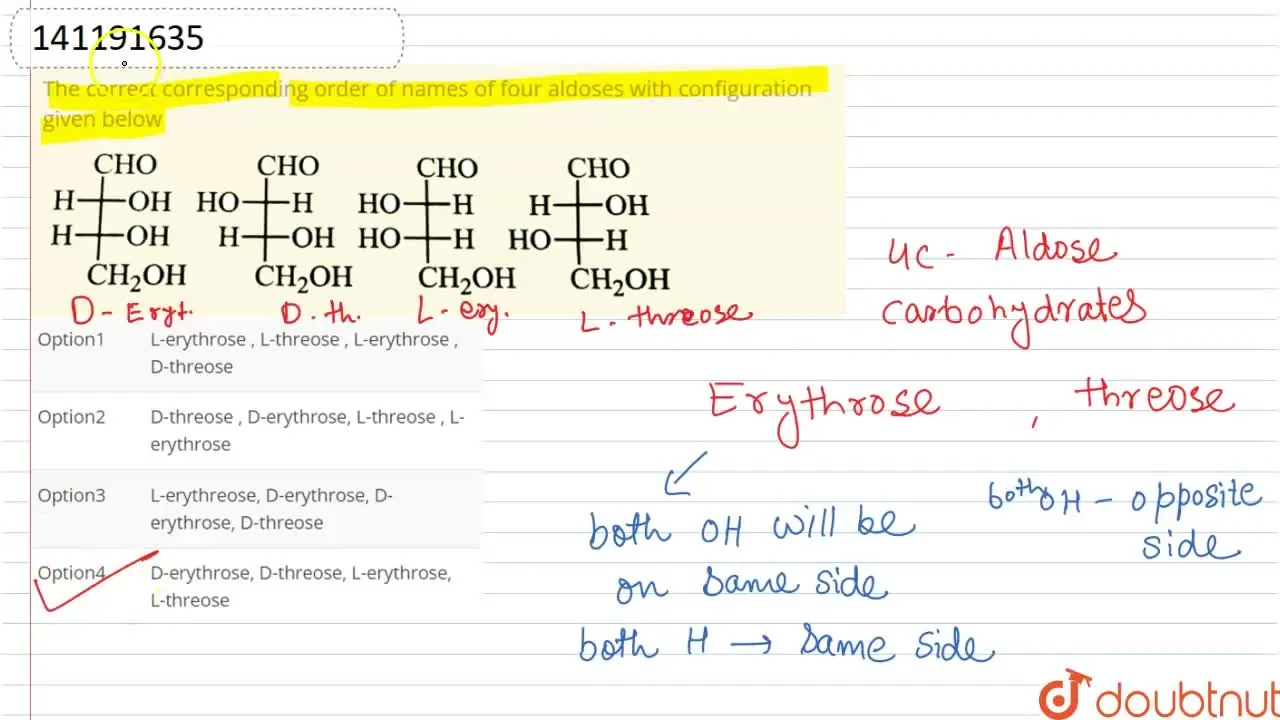 141191635
The correct corresponding order of names of four aldoses with configuration
given below
CHO CHO CHO CHO
H OH HO H HO H H OH
H OH H OH HO H HO H
CH2OH CH2OH CH2OH CH2OH
D- Eryt. D. th. L- ery. L - threose
4C - Aldose
carbohydrates
Option1 L-erythrose , L-threose , L-erythrose ,
D-threose
Option2 D-threose , D-erythrose, L-threose , L-
erythrose
Option3 L-erythreose, D-erythrose, D-
erythrose, D-threose
Option4 D-erythrose, D-threose, L-erythrose,
L-threose
Erythrose , threose
both OH will be
on same side
both H → same side
both OH - opposite
side
doubtnut